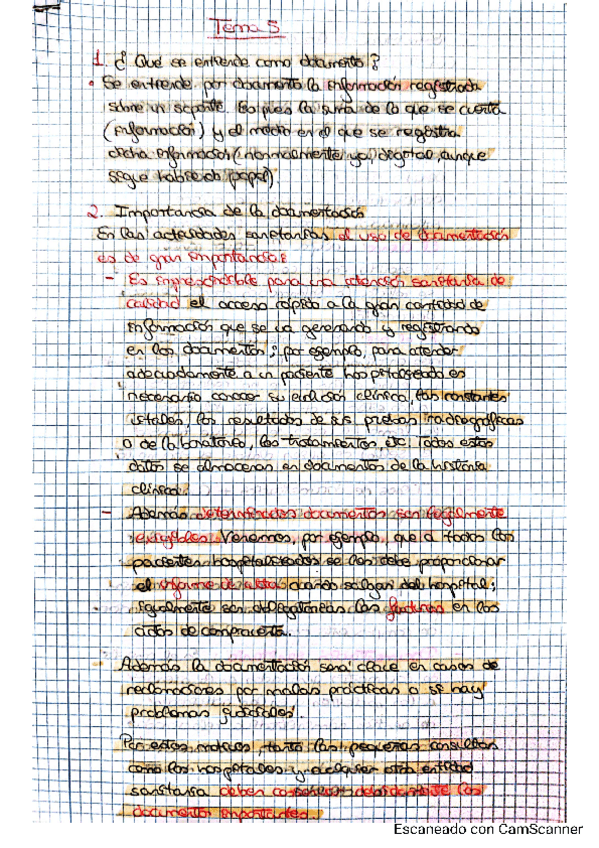 Tema 5
1. ¿Qué se entiende como documento?
• Se entiende por documento la información registrada
sobre un soporte. Es pues la suma de lo que se cuenta
(información) y el medio en el que se registra
dicha información (normalmente ya, digital, aunque
sigue habiendo papel)
2. Importancia de la documentación
En las actividades sanitarias el uso de documentación
es de gran importancia:
- Es imprescindible para una atención sanitaria de
calidad el acceso rápido a la gran cantidad de
información que se va generando y registrando
en los documentos; por ejemplo, para atender
adecuadamente a un paciente hospitalizado es
necesario conocer su evolución clínica, las constantes
vitales, los resultados de sus pruebas radiográficas
o de laboratorio, los tratamientos, etc. Todos estos
datos se almacenan en documentos de la historia
clínica.
- Además determinados documentos son legalmente
exigibles. Veremos, por ejemplo, que a todos los
pacientes hospitalizados se les debe proporcionar
el informe de alta cuando salgan del hospital;
igualmente son obligatorias las facturas en los
actos de compraventa.
Además la documentación será clave en casos de
reclamaciones por malas prácticas o si hay
problemas judiciales.
Por estos motivos, tanto las pequeñas consultas
como los hospitales y cualquier otra entidad
sanitaria deben conservar debidamente los
documentos importantes.
Escaneado con CamScanner